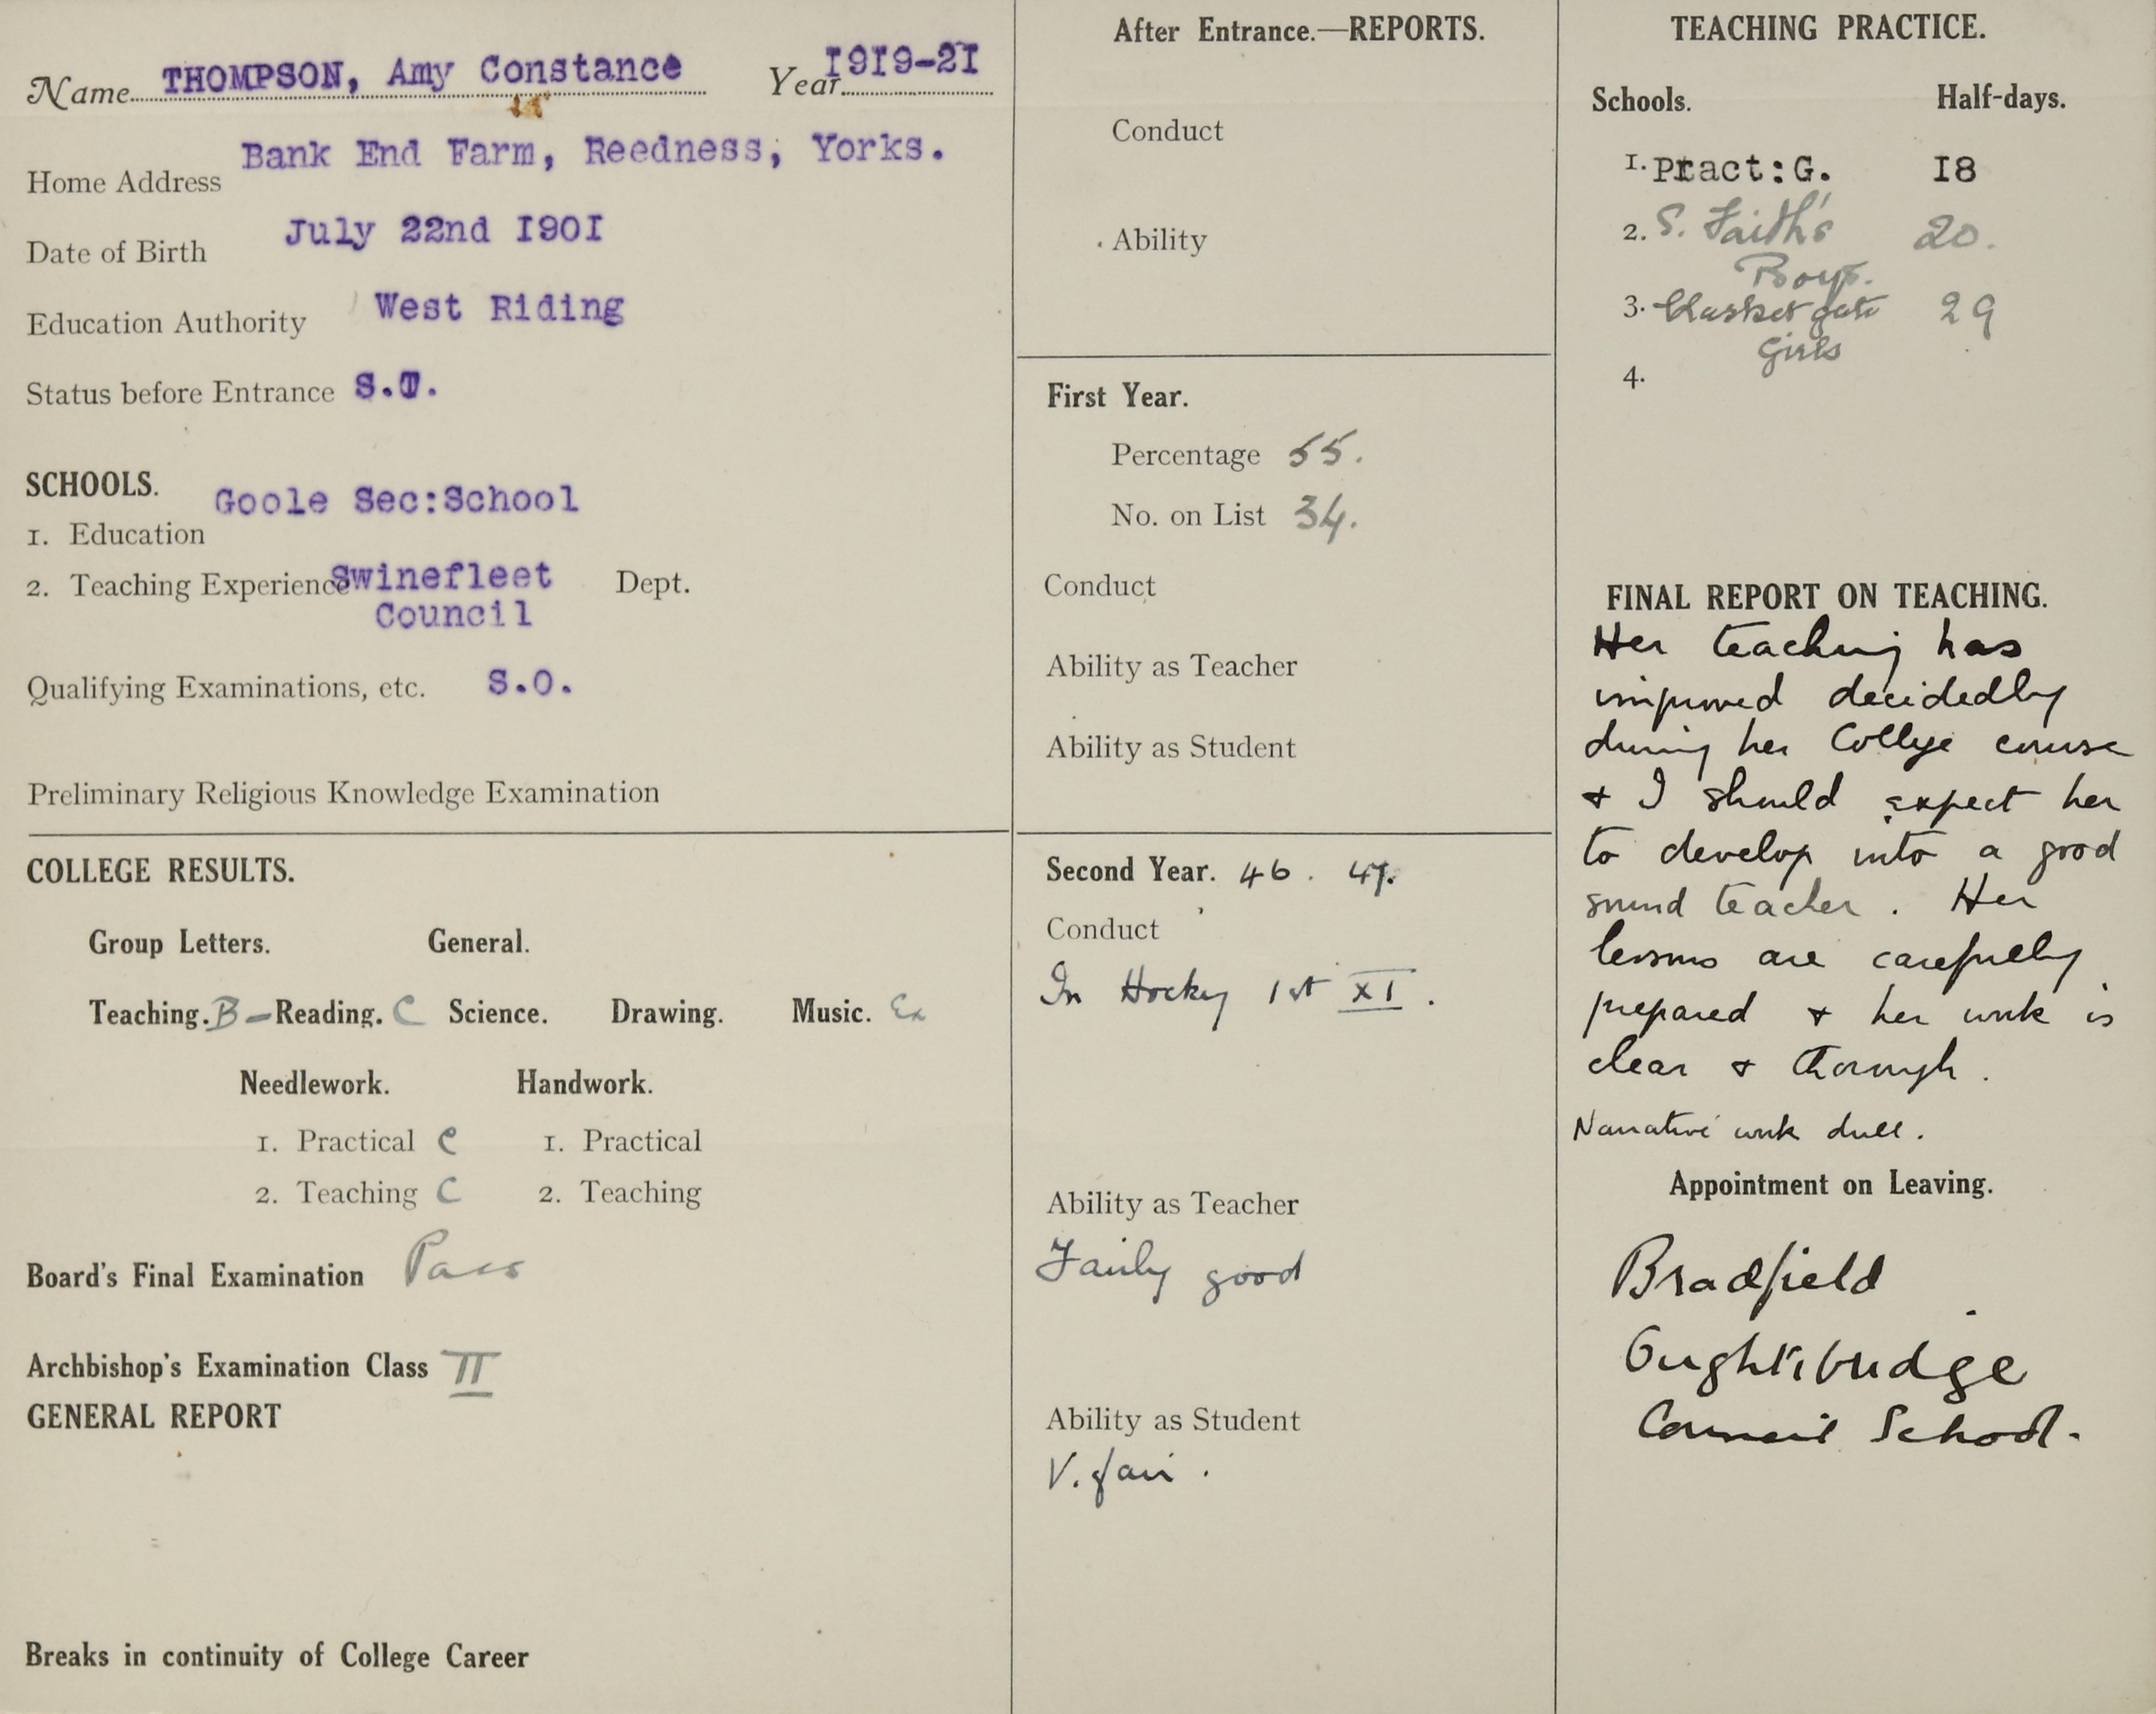 Name THOMPSON, Amy Constance Year 1919-21
Home Address Bank End Farm, Reedness, Yorks.
Date of Birth July 22nd 1901
Education Authority West Riding
Status before Entrance S.T.
SCHOOLS.
1. Education Goole Sec:School
2. Teaching Experience Swinefleet Dept.
Council
Qualifying Examinations, etc. S.O.
Preliminary Religious Knowledge Examination
COLLEGE RESULTS.
Group Letters. General.
Teaching. B- Reading. C Science. Drawing. Music. Ex
Needlework. Handwork.
1. Practical C 1. Practical
2. Teaching C 2. Teaching
Board's Final Examination Pass
Archbishop's Examination Class II
GENERAL REPORT
Breaks in continuity of College Career
After Entrance.—REPORTS.
Conduct
Ability
First Year.
Percentage 55.
No. on List 34.
Conduct
Ability as Teacher
Ability as Student
Second Year. 46. 47.
Conduct
In Hockey 1st XI.
Ability as Teacher
Fairly good
Ability as Student
V. fair.
TEACHING PRACTICE.
Schools. Half-days.
1. Pract:G. 18
2. S. Faith's 20.
Boys.
3. 29
Girls
4.
FINAL REPORT ON TEACHING.
Her teaching has
improved decidedly
during her College course
& I should expect her
to develop into a good
sound teacher. Her
lessons are carefully
prepared & her work is
clear & thorough.
Narrative work dull.
Appointment on Leaving.
Bradfield
Oughtibridge
Council School.